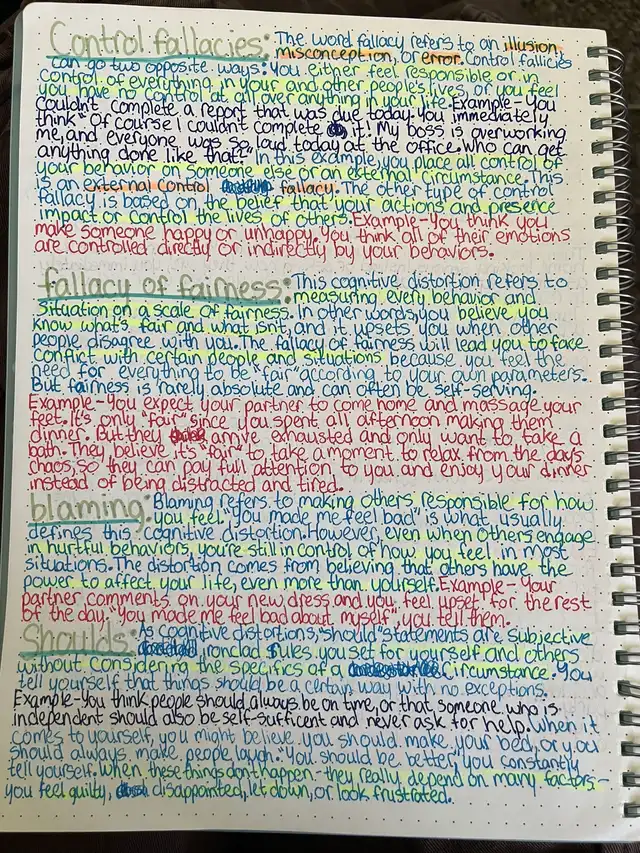 Control fallacies: The word fallacy refers to an illusion,
misconception, or error. Control fallicies
can go two opposite ways: you either feel responsible or in
control of everything in your and other people's lives, or you feel
you have no control at all over anything in your life. Example - You
couldn't complete a report that was due today. You immediately
think "Of course I couldn't complete it! My boss is overworking
me, and everyone was so loud today at the office. Who can get
anything done like that?" In this example, you place all control of
your behavior on someone else or an external circumstance. This
is an external control fallacy. The other type of control
fallacy is based on the belief that your actions and presence
impact or control the lives of others. Example - You think you
make someone happy or unhappy. You think all of their emotions
are controlled directly or indirectly by your behaviors.
fallacy of fairness: This cognitive distortion refers to
measuring every behavior and
situation on a scale of fairness. In other words, you believe you
know what's fair and what isnt, and it upsets you when other
people disagree with you. The fallacy of fairness will lead you to face
conflict with certain people and situations because you feel the
need for everything to be "fair" according to your own parameters.
But fairness is rarely absolute and can often be self-serving.
Example - You expect your partner to come home and massage your
feet. It's only "fair" since you spent all afternoon making them
dinner. But they arrive exhausted and only want to take a
bath. They believe it's "fair" to take a moment to relax from the days
chaos, so they can pay full attention to you and enjoy your dinner
instead of being distracted and tired.
blaming: Blaming refers to making others responsible for how
you feel. "You made me feel bad" is what usually
defines this cognitive distortion. However, even when others engage
in hurtful behaviors, you're still in control of how you feel in most
situations. The distortion comes from believing that others have the
power to affect your life, even more than yourself. Example - Your
partner comments on your new dress and you feel upset for the rest
of the day. "You made me feel bad about myself", you tell them.
Shoulds: As cognitive distortions, "should" statements are subjective
ironclad rules you set for yourself and others
without considering the specifics of a circumstance. You
tell yourself that things should be a certain way with no exceptions.
Example - You think people should always be on time, or that someone who is
independent should also be self-sufficent and never ask for help. When it
comes to yourself, you might believe you should make your bed, or you
should always make people laugh. "You should be better, you constantly
tell yourself. When these things don't happen - they really depend on many factors -
you feel guilty, disappointed, let down, or look frustrated.